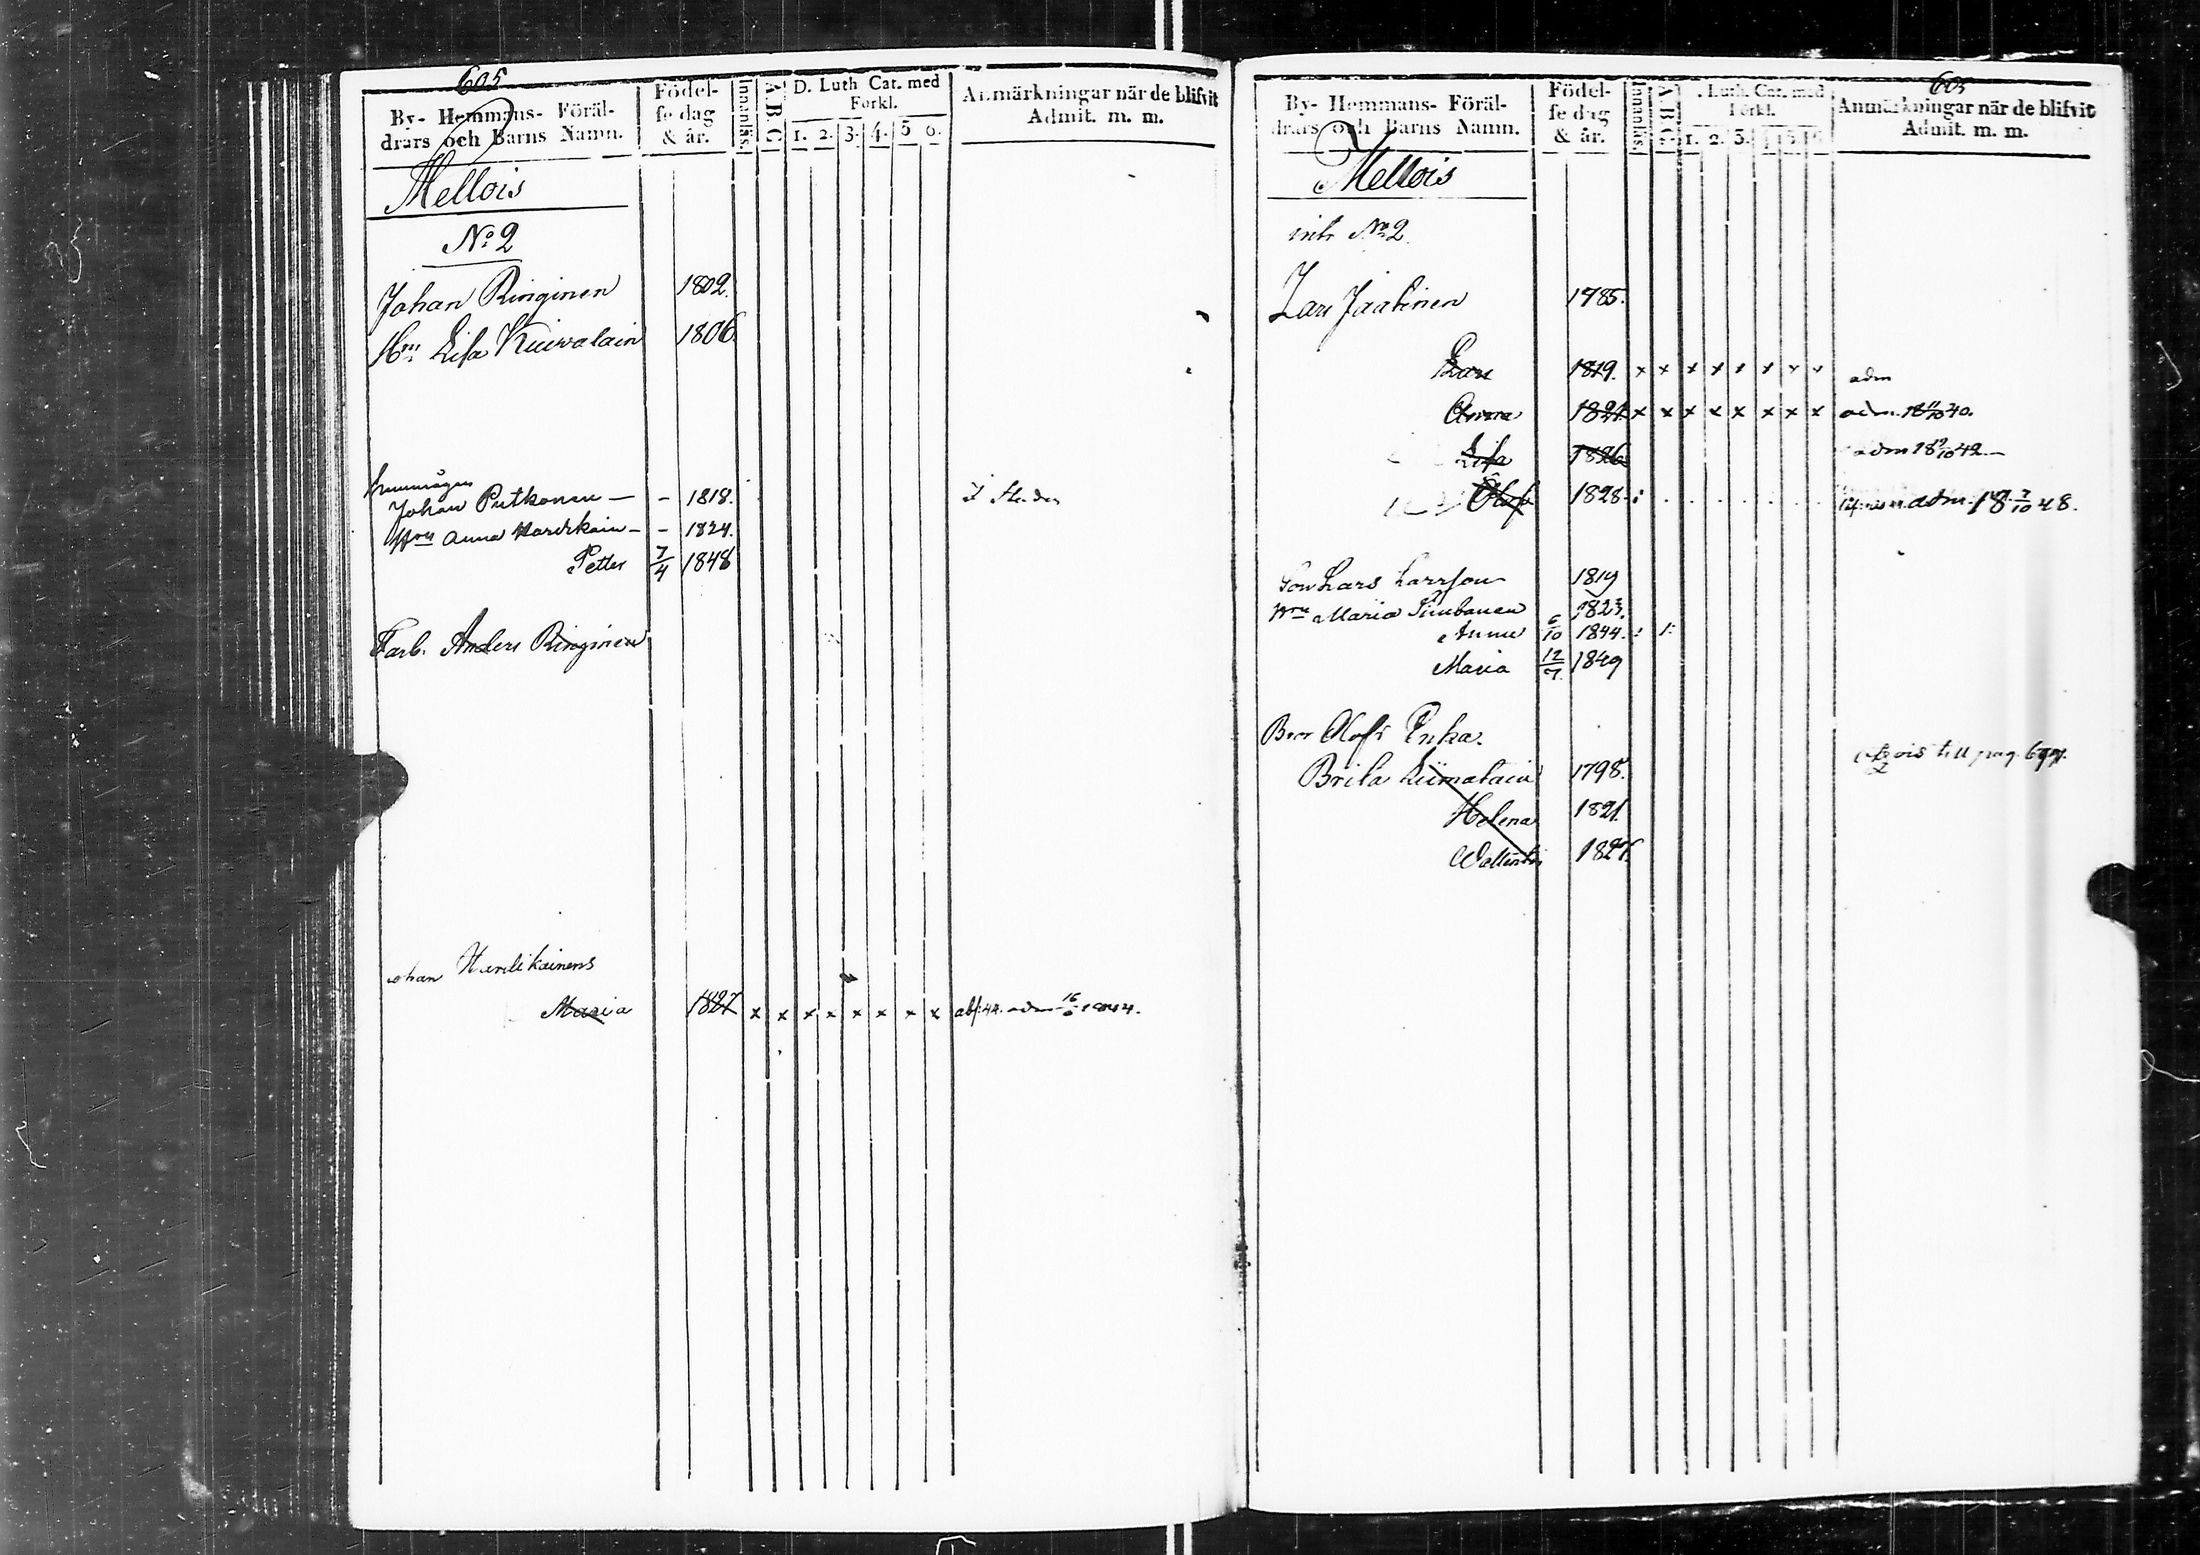 605
By- Hemmans- Föräl-
drars och Barns Namn.
Födel-
se dag
& år.
Innanläs.
A.B.C.
D. Luth Cat. med
Förkl.
1. 2. 3. 4. 5 6.
Anmärkningar när de blifvit
Admit. m. m.
Mellois
No 2
Johan Ringinen 1802.
Hru Lisa Kuivalain 1806.
Johan Putkonen — - 1818.
Hru Anna - - 1824.
Petter 7/4 1848
Farb. Anders Ringinen
Hardikainens
Maria 1827 x x x x x x x x
605
By- Hemmans- Föräl-
drars och Barns Namn.
Födel-
se dag
& år.
Innanläs.
A.B.C.
. Luth. Cat. med
Förkl.
1. 2. 3. 4 5 6
Anmärkningar när de blifvit
Admit. m. m.
Mellois
No 2.
Lars Jaatinen 1785.
Lars 1819. x x x x x x x x adm
Anna 1821. x x x x x x x x adm. 40.
Lisa 1826 adm 18 9/10 42.—
Olof 1828. adm. 18 7/10 48.
Son Lars Larsson 1819
Hru Maria 1823.
Anna 6/10 1844.
Maria 12/7 1849
Bror Olofs Enka.
Brita Liimatain 1798.
till pag.
Helena 1821.
1827.